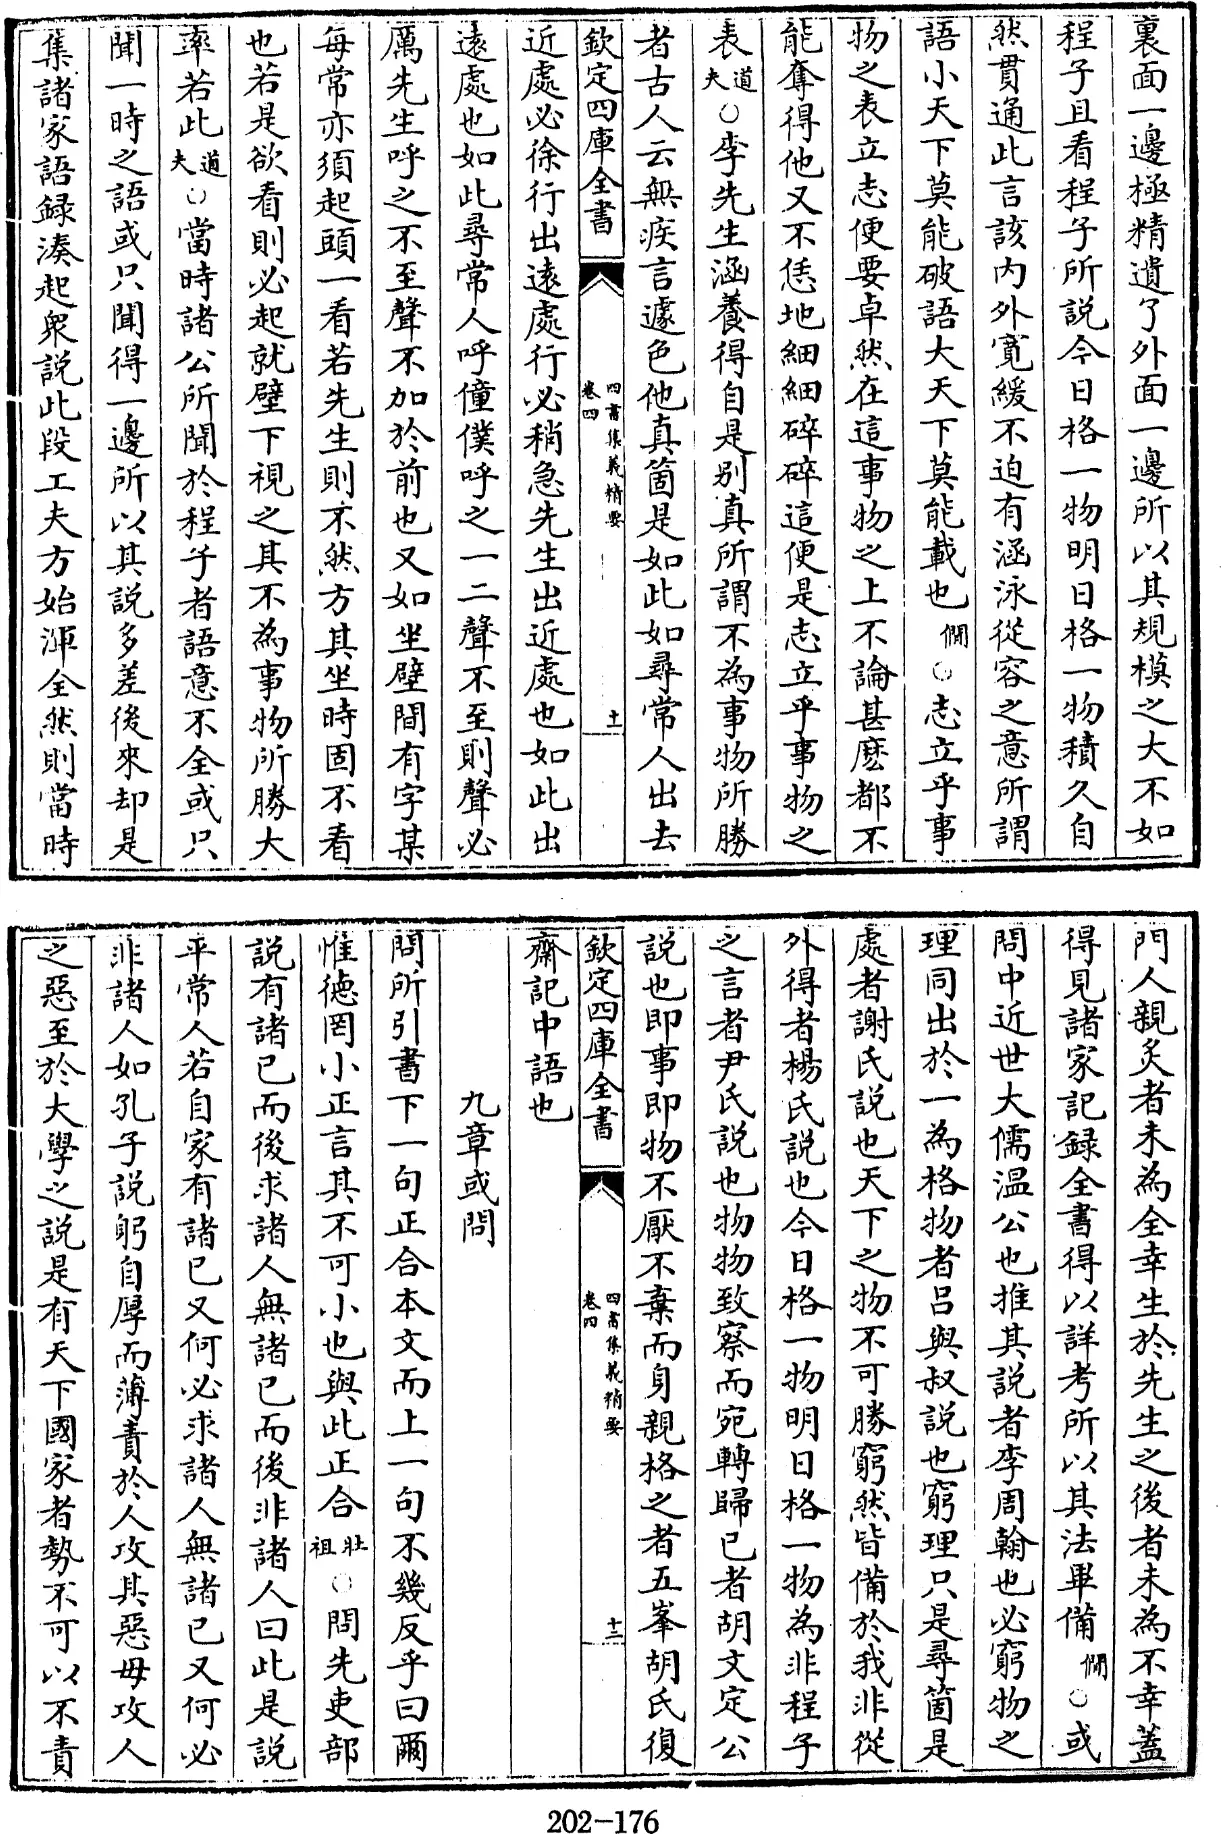 裏面一邊極精遺了外面一邊所以其規模之大不如
程子且看程子所説今日格一物明日格一物積久自
然貫通此言該内外寛緩不迫有涵泳從容之意所謂
語小天下莫能破語大天下莫能載也㒓○志立乎事
物之表立志便要卓然在這事物之上不論甚麽都不
能奪得他又不恁地細細碎碎這便是志立乎事物之
表道夫○李先生涵養得自是别真所謂不為事物所勝
者古人云無疾言遽色他真箇是如此如尋常人出去
欽定四庫全書
四書集義精要
卷四
十一
近處必徐行出逺處行必稍急先生出近處也如此出
逺處也如此尋常人呼僮僕呼之一二聲不至則聲必
厲先生呼之不至聲不加於前也又如坐壁間有字某
每常亦須起頭一看若先生則不然方其坐時固不看
也若是欲看則必起就壁下視之其不為事物所勝大
率若此道夫○當時諸公所聞於程子者語意不全或只
聞一時之語或只聞得一邊所以其説多差後來却是
集諸家語録湊起衆説此段工夫方始渾全然則當時
門人親炙者未為全幸生於先生之後者未為不幸蓋
得見諸家記録全書得以詳考所以其法畢備㒓○或
問中近世大儒温公也推其説者李周翰也必窮物之
理同出於一為格物者吕與叔説也窮理只是尋箇是
處者謝氏説也天下之物不可勝窮然皆備於我非從
外得者楊氏説也今日格一物明日格一物為非程子
之言者尹氏説也物物致察而宛轉歸已者胡文定公
説也即事即物不厭不棄而身親格之者五峯胡氏復
欽定四庫全書
四書集義精要
卷四
十二
齋記中語也
九章或問
問所引書下一句正合本文而上一句不幾反乎曰爾
惟德罔小正言其不可小也與此正合壯祖○問先吏部
説有諸已而後求諸人無諸已而後非諸人曰此是説
平常人若自家有諸已又何必求諸人無諸已又何必
非諸人如孔子説躬自厚而薄責於人攻其惡毋攻人
之惡至於大學之説是有天下國家者勢不可以不責
202-176